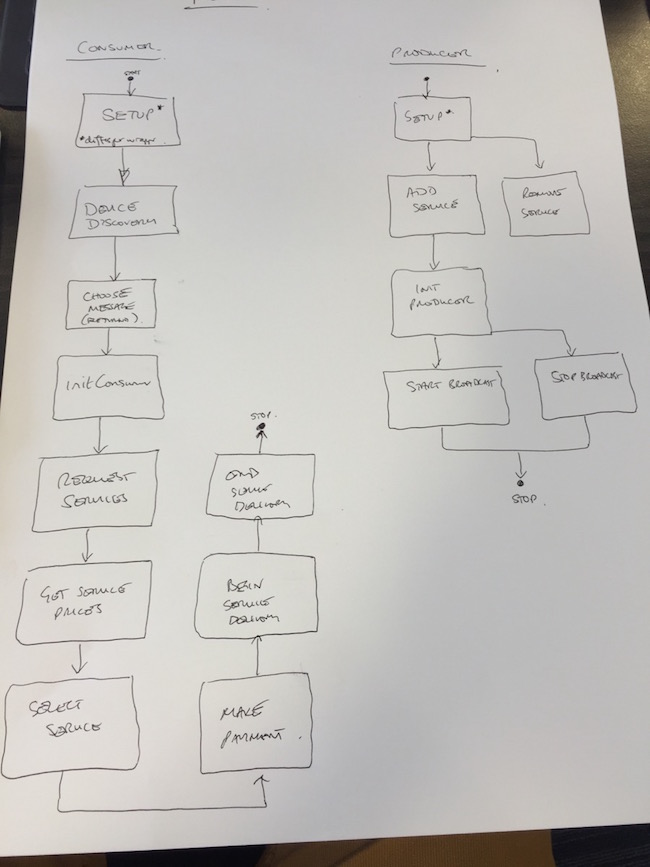 CONSUMER
START
SETUP*
DEVICE
DISCOVERY
CHOOSE
MESSAGE
(RETURNS)
init Consumer
REQUEST
SERVICES
GET SERVICE
PRICES
SELECT
SERVICE
STOP
END
SERVICE
DELIVERY
BEGIN
SERVICE
DELIVERY
MAKE
PAYMENT.
PRODUCER
SETUP*
ADD
SERVICE
REMOVE
SERVICE
INIT
PRODUCER
START BROADCAST
STOP BROADCAST
STOP.